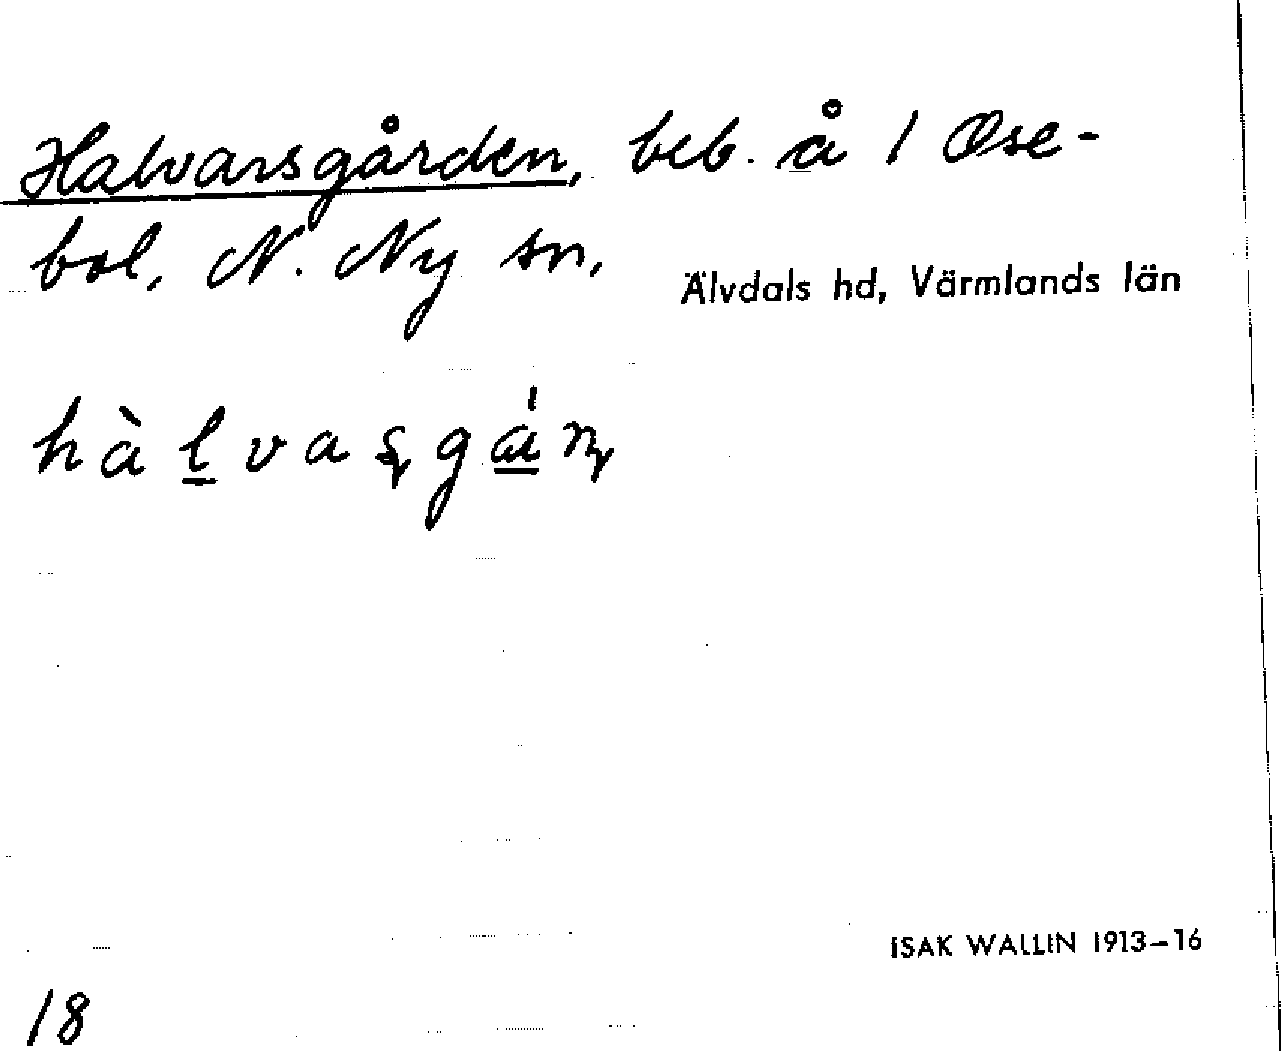 Halvarsgården, beb. å 1 Ose-
bol, N. Ny sn,
Älvdals hd, Värmlands län
hàḻvaʂgɑ̲́ɳ
ISAK WALLIN 1913–16
18